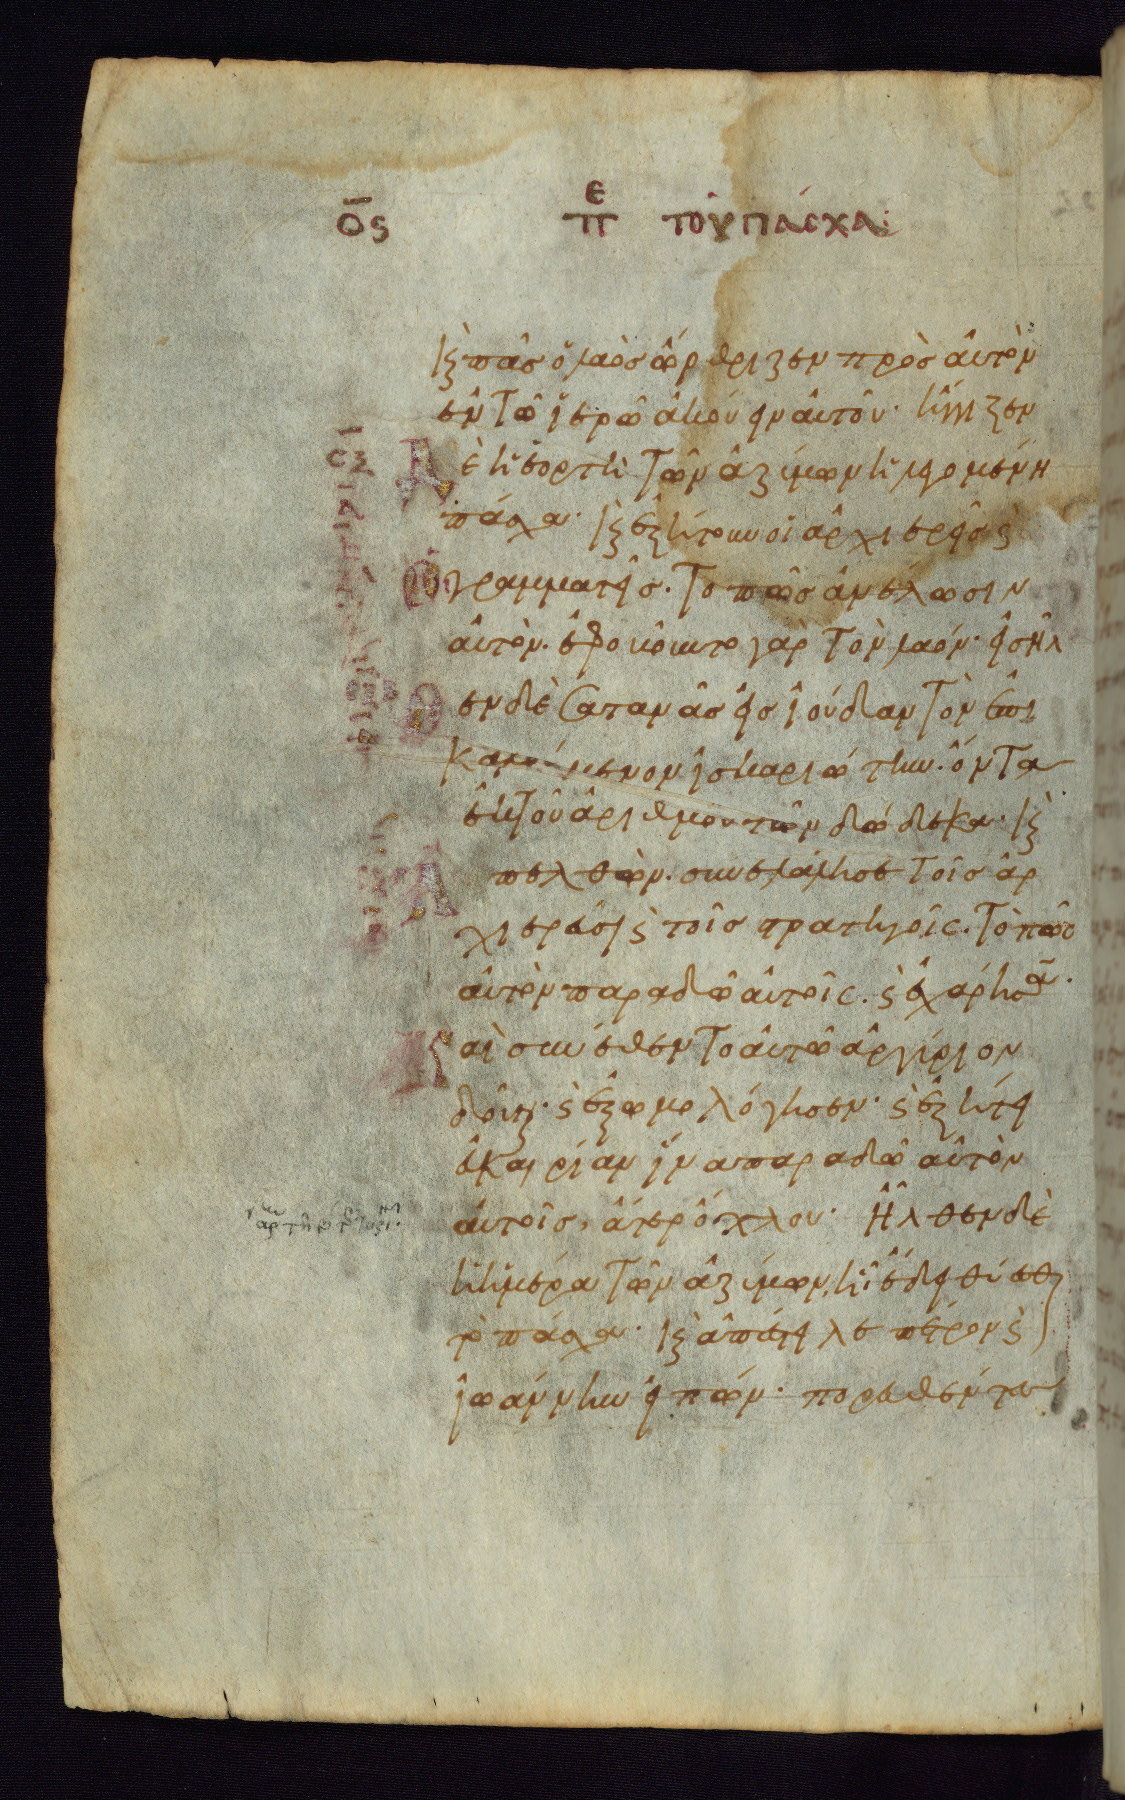 ος πε τοῦ πάσχα:
κ(αὶ) πᾶς ὁ λαὸς ὤρθριζεν πρὸς αὐτὸν
ἐν τῷ ἱερῷ ἀκούειν αὐτοῦ. ἤγγιζεν
δὲ ἡ ἑορτὴ τῶν ἀζύμων ἡ λεγομένη
πάσχα. κ(αὶ) ἐζήτουν οἱ ἀρχιερεῖς κ(αὶ)
οἱ γραμματεῖς. τὸ πῶς ἀνέλωσιν
αὐτὸν. ἐφοβοῦντο γὰρ τὸν λαόν. εἰσῆλ
θεν δὲ Σατανᾶς εἰς ἰούδαν τὸν ἐπι
καλούμενον ἰσκαριώτην. ὄντα
ἐκ τοῦ ἀριθμοῦ τῶν δώδεκα. κ(αὶ)
ἀπελθὼν. συνελάλησε τοῖς ἀρ
χιερεῦσι κ(αὶ) τοῖς στρατηγοῖς. τὸ πῶς
αὐτὸν παραδῶ αὐτοῖς. κ(αὶ) ἐχάρησαν.
καὶ συνέθεντο αὐτῷ ἀργύριον
δοῦναι. κ(αὶ) ἐξωμολόγησεν. κ(αὶ) ἐζήτει
εὐκαιρίαν ἵνα παραδῶ αὐτὸν
αὐτοῖς, ἄτερ ὄχλου. Ἦλθεν δὲ
ἡ ἡμέρα τῶν ἀζύμων, ἧ ἔδει θύεσθαι
τὸ πάσχα. κ(αὶ) ἀπέστειλε πέτρον κ(αὶ)
ἰωάννην εἰπών. πορευθέντες